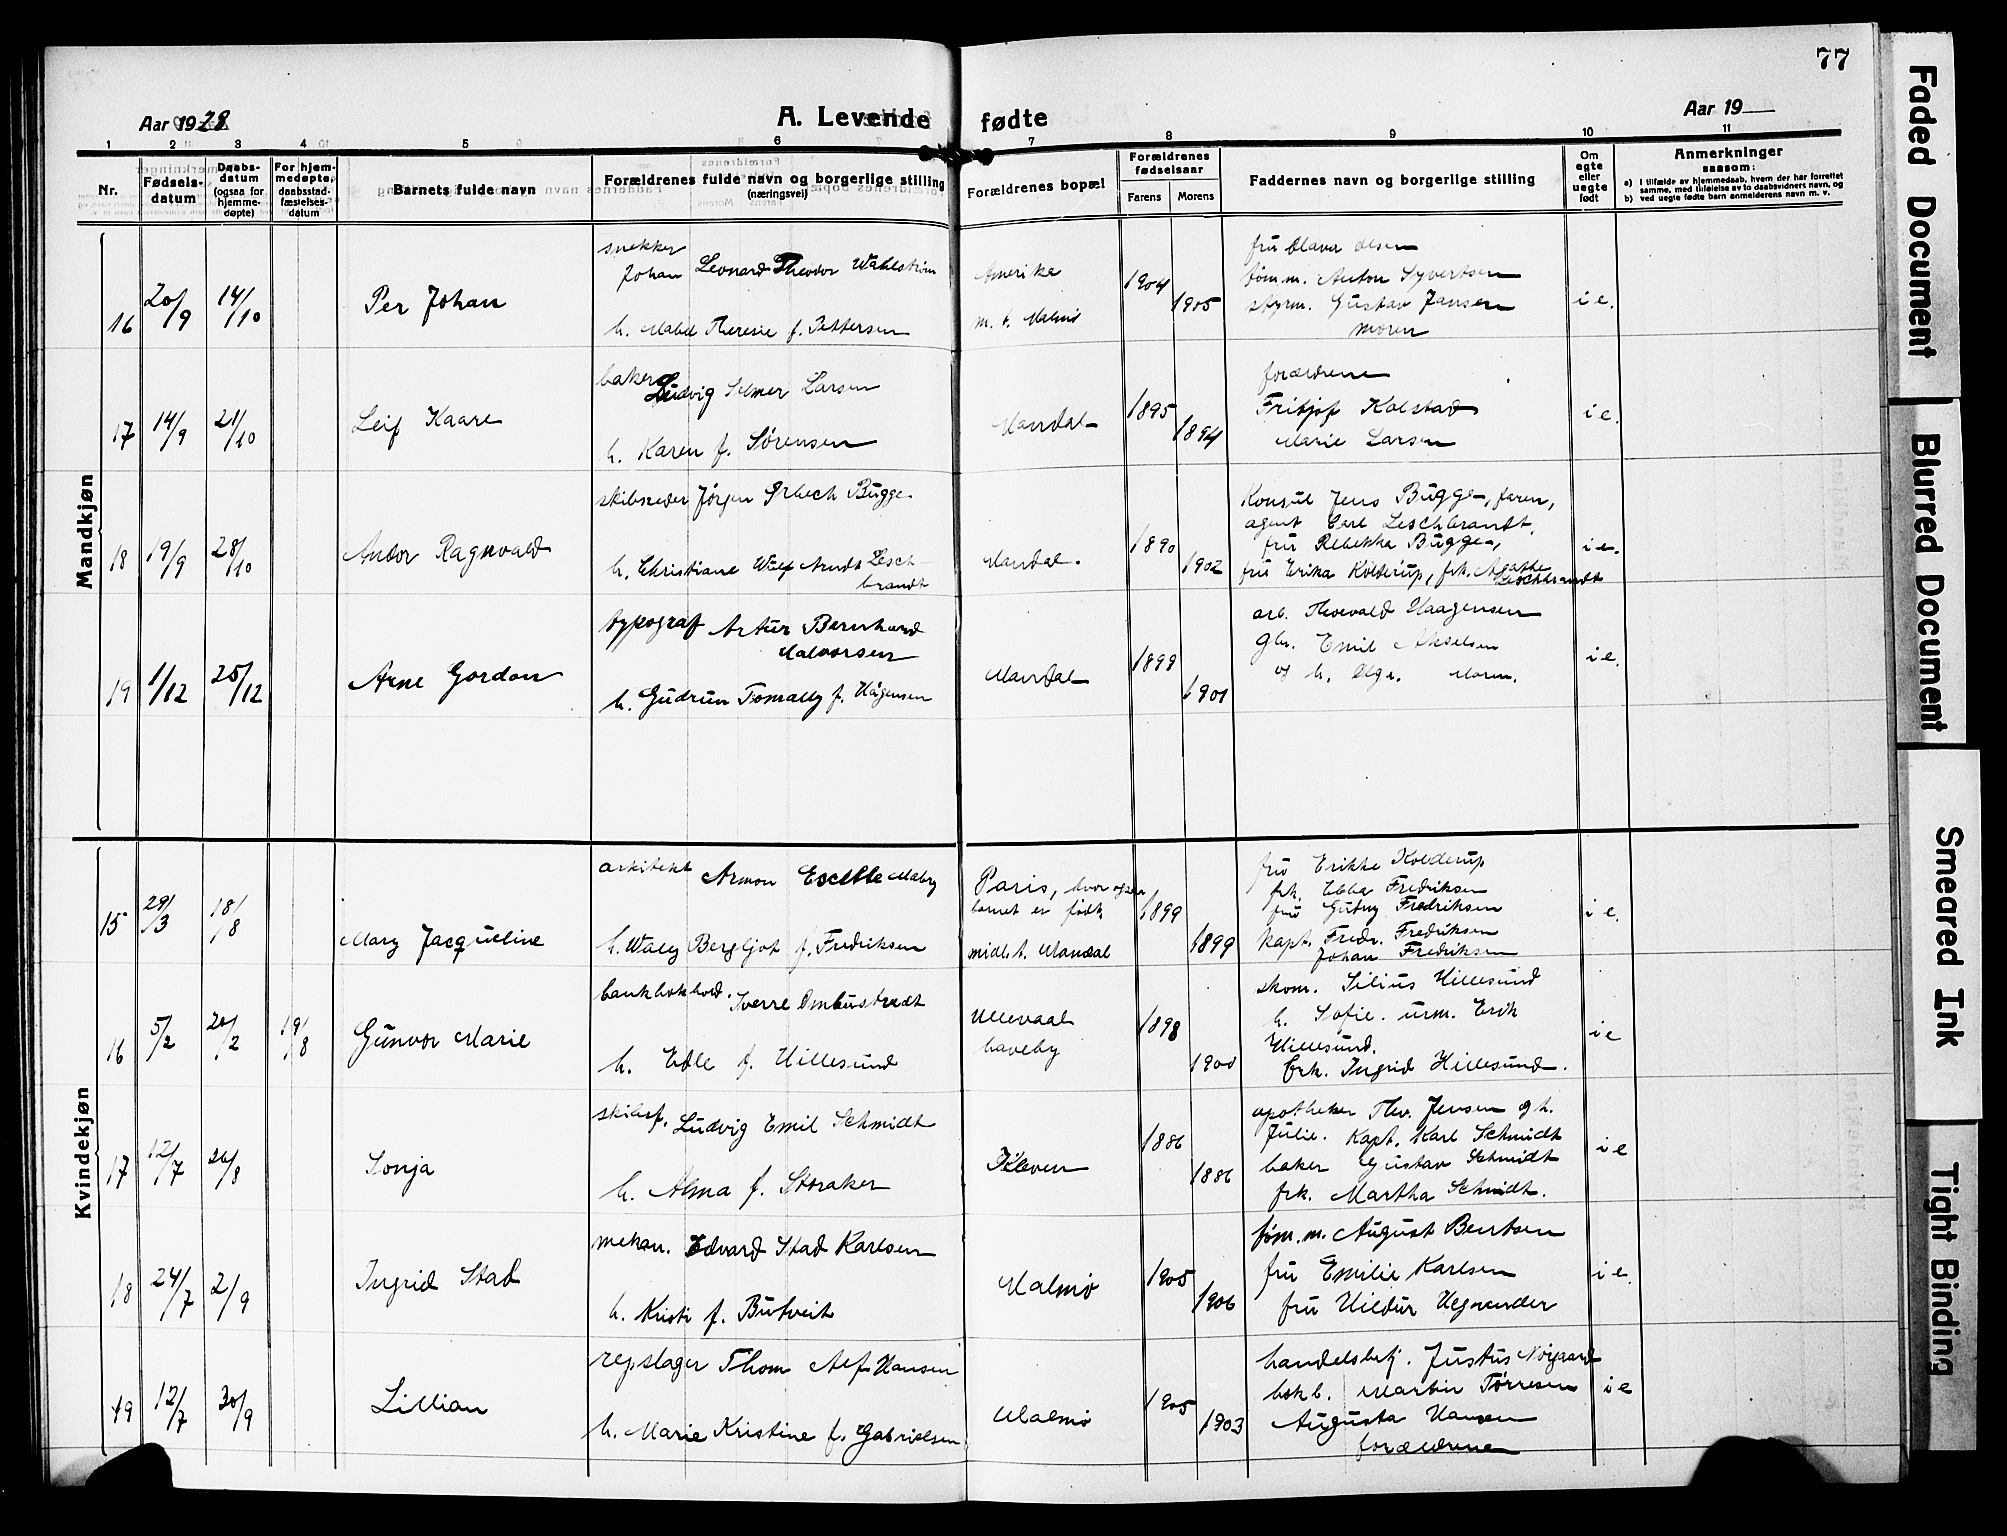 77
Aar 1928
A. Levende fødte
Aar 19
1 2 3 4 5 6 7 8 9 10 11
Nr.
Fødsels-datum
Daabs-datum (ogsaa for hjemme-døpte)
For hjem-medøpte, daabsstad-fæstelses-datum
Barnets fulde navn
Forældrenes fulde navn og borgerlige stilling (næringsvei)
Forældrenes bopæl
Forældrenes fødselsaar
Farens Morens
Faddernes navn og borgerlige stilling
Om egte eller uegte født
Anmerkninger saasom:
a) I tilfælde av hjemmedaab, hvem der har forrettet samme, med tilføielse av to daabsvidners navn, og
b) ved uegte fødte barn anmelderens navn m. v.
Mandkjøn
16 20/9 14/10 Per Johan
snekker Johan Leonard Theodor Wahlstrøm
h. Mabel Theresie f. Pettersen
Amerika
m. t. Malmø
1904 1905
fru Olava Olsen
tømm. Anton Syvertsen
styrm. Gustav Jansen
moren
i e.
17 14/9 21/10 Leif Kaare
baker Ludvig Selmer Larsen
h. Karen f. Sørensen
Mandal
1895 1894
forældrene
Fritjof Kolstad
Marie Larsen
i e.
18 19/9 28/10 Andor Ragnvald
skibsreder Jørgen Bugge
h. Christiane Wulf Arndt Leschbrandt
Mandal.
1890 1902
Konsul Jens Bugge, faren,
agent Carl Leschbrandt,
fru Rebekka Bugge,
fru Erika Kolderup, frk. Agathe Leschbrandt
i e.
19 1/12 25/12 Arne Gordon
typograf Artur Bernhard Halvorsen
h. Gudrun Tomally f. Hågensen
Mandal
1899 1901
arb. Thorvald Haagensen
gbr. Emil Akselsen
og h. Olga. Moren.
i e.
Kvindekjøn
15 29/3 18/8 Mary Jacqueline
arkitekt Armon Mabry
h. Wally Bergljot f. Fredriksen
Paris, hvor ogsaa
barnet er født,
midl. t. Mandal
1899 1899
fru Erikke Kolderup
frk. Ebba Fredriksen
fru Fredriksen
kapt. Fredr. Fredriksen
Johan Fredriksen
i e.
16 5/2 20/2 19/8 Gunvor Marie
bankbokhold. Sverre Ombustvedt
h. Edle f. Hillesund
Ullevaal
haveby
1898 1900
skom. Silius Hillesund
h. Sofie. urm. Erik
Hillesund.
frk. Ingrid Hillesund.
i e
17 12/7 26/8 Sonja
skibsf. Ludvig Emil Schmidt
h. Alma f. Storaker
Kleven
1886 1886
apotheker Thv. Jensen og h.
Julie. Kapt. Karl Schmidt
baker Gustav Schmidt
frk. Martha Schmidt.
i e
18 24/7 2/9 Ingrid Stad
mekan. Edvard Stad Karlsen
h. Kristi f. Butveit
Malmø
1905 1906
tøm. m. August Bentsen
fru Emilie Karlsen
fru Hildur Hegnander
i e.
19 12/7 30/9 Lillian
repslager Thom Alf Hansen
h. Marie Kristine f. Gabrielsen
Malmø
1905 1903
handelsbetj. Justus Norgaard
bokb. Martin Tørresen
Augusta Hansen
forældrene
i e
Faded Document
Blurred Document
Smeared Ink
Tight Binding